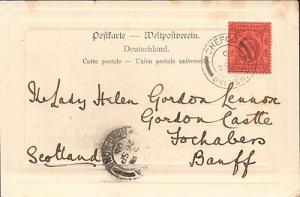 Postkarte — Weltpostverein.
Deutschland.
Carte postale — Union postale universelle
CHEFOO
The Lady Helen Gordon Lennox
Gordon Castle
Fochabers
Scotland
Banff